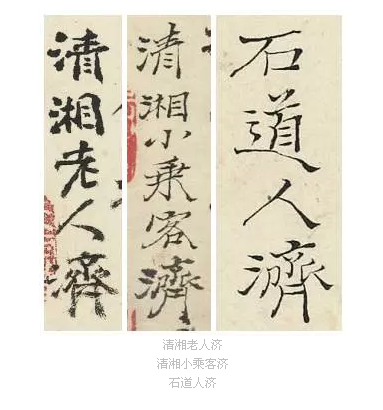 清湘老人濟
清湘小乘客濟
石道人濟
清湘老人济
清湘小乘客济
石道人济